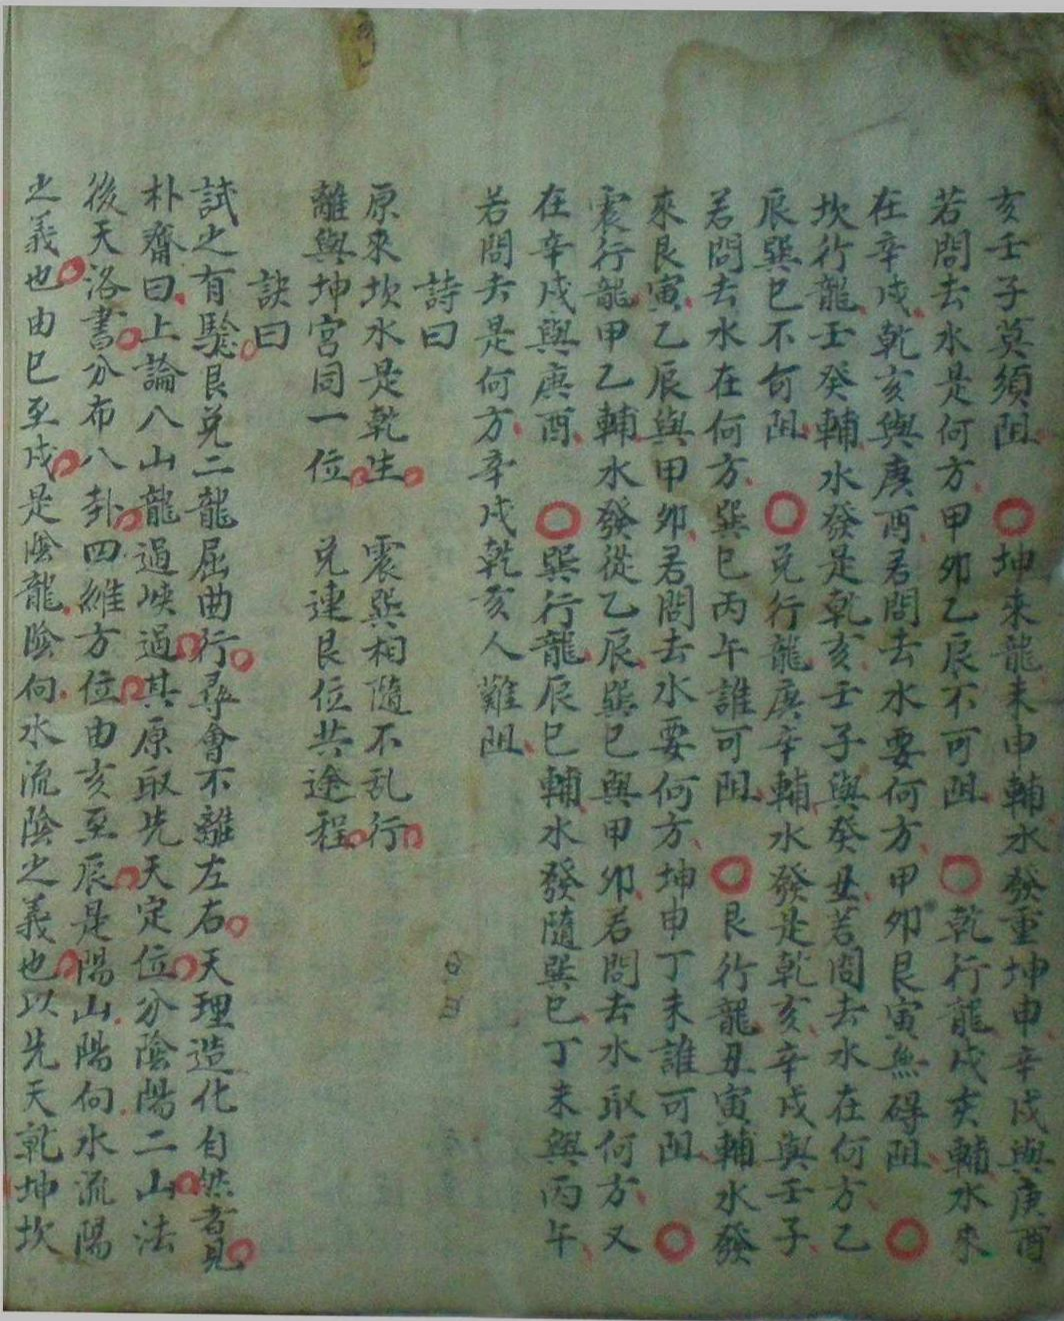 亥壬子莫須阻○坤來龍未申輔水發重坤申辛戌與庚酉
若問去水是何方甲卯乙辰不可阻○乾行龍戌亥輔水來
在辛戌乾亥與庚酉若問去水要何方甲卯艮寅無碍阻○
坎行龍壬癸輔水發是乾亥壬子與癸丑若問去水在何方乙
辰巽巳不何阻○兌行龍庚辛輔水發是乾亥辛戌與壬子
若問去水在何方巽巳丙午誰可阻○艮行龍丑寅輔水發
來艮寅乙辰與甲卯若問去水要何方坤申丁未誰可阻○
震行龍甲乙輔水發從乙辰巽巳與甲卯若問去水取何方又
在辛戌與庚酉○巽行龍辰巳輔水發隨巽巳丁未與丙午
若問去是何方辛戌乾亥人難阻
詩曰
原來坎水是乾生 震巽相隨不乱行
離與坤宮同一位 兌連艮位共途程
訣曰
試之有驗艮兌二龍屈曲行尋會不離左右天理造化自然者見
朴齋曰上論八山龍過峽過其原取先天定位分陰陽二山法
後天洛書分布八卦四維方位由亥至辰是陽山陽向水流陽
之義也由巳至戌是陰龍陰向水流陰之義也以先天乾坤坎